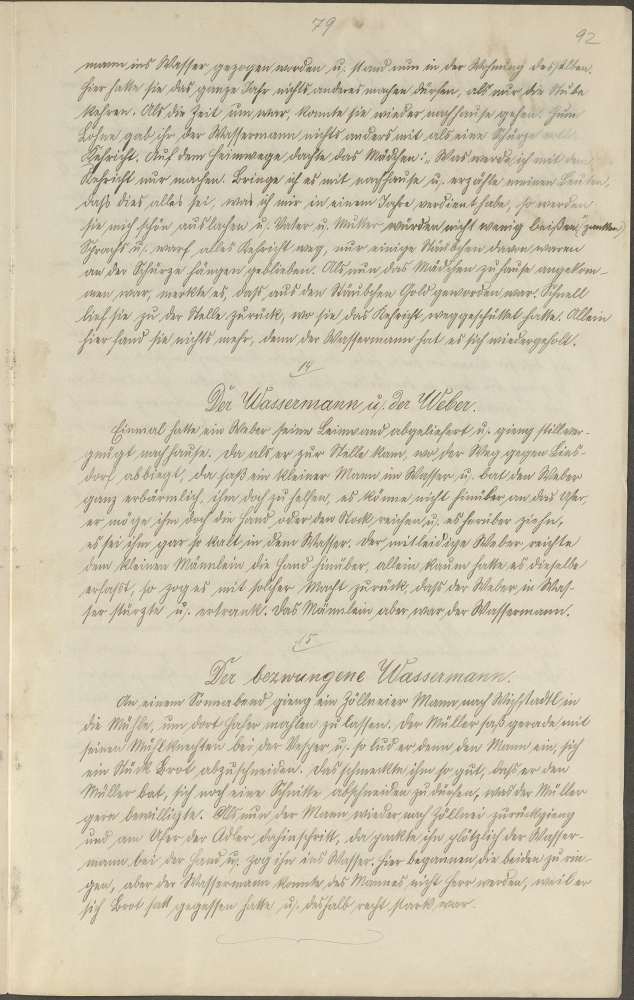 79
92
mann ins Wasser gezogen worden u. stand nun in der Wohnung desselben.
Hier hatte sie das ganze Jahr nichts anderes machen dürfen, als nur die Stube
kehren. Als die Zeit um war, konnte sie wieder nachhause gehen. Zum
Lohne gab ihr der Wassermann nichts anders mit als eine Schürze
Kehricht. Auf dem Heimwege dachte das Mädchen: „Was werde ich mit dem
Kehricht nur machen. Bringe ich es mit nachhause u. erzähle meinen Leuten,
daß dies alles sei, was ich mir in einem Jahre verdient habe, so werden
sie mich schön auslachen u. Vater u. Mutter würden nicht wenig beißen (zanken)
Sprachs u. warf alles Kehricht weg, nur einige Stäubchen davon waren
an der Schürze hängen geblieben. Als nun das Mädchen zuhause angekom-
men war, merkte es, daß aus den Stäubchen Gold geworden war. Schnell
lief sie zu der Stelle zurück, wo sie das Kehricht weggeschüttet hatte. Allein
hier fand sie nichts mehr, denn der Wassermann hat es sich wiedergeholt.
14
Der Wassermann u. der Weber.
Einmal hatte ein Weber seine Leinwand abgeliefert u. gieng stillver-
gnügt nachhause. Da als er zur Stelle kam, wo der Weg gegen Lies-
dorf abbiegt, da saß ein kleiner Mann im Wasser u. bat den Weber
ganz erbärmlich, ihm doch zu helfen, es könne nicht hinüber an das Ufer,
er möge ihm doch die Hand oder den Stock reichen u. es herüber ziehn,
es sei ihm gar so kalt in dem Wasser. Der mitleidige Weber reichte
dem kleinen Männlein die Hand hinüber, allein kaum hatte es dieselbe
erfaßt, so zog es mit solcher Macht zurück, daß der Weber in Was-
ser stürzte u. ertrank. Das Männlein aber war der Wassermann.
15
Der bezwungene Wassermann.
An einem Sonnabend gieng ein Zöllneier Mann nach Wichstadtl in
die Mühle, um dort Hafer mahlen zu lassen. Der Müller saß gerade mit
seinen Mühlknechten bei der Vesper u. so lud er denn den Mann ein, sich
ein Stück Brot abzuschneiden. Das schmeckte ihm so gut, daß er den
Müller bat, sich noch eine Schnitte abschneiden zu dürfen, was der Müller
gern bewilligte. Als nun der Mann wieder nach Zöllnei zurückgieng
und am Ufer der Adler dahinschritt, da packte ihn plötzlich der Wasser-
mann bei der Hand u. zog ihn ins Wasser. Hier begannen die beiden zu rin-
gen, aber der Wassermann konnte des Mannes nicht Herr werden, weil er
sich Brot satt gegessen hatte u. deshalb recht stark war.